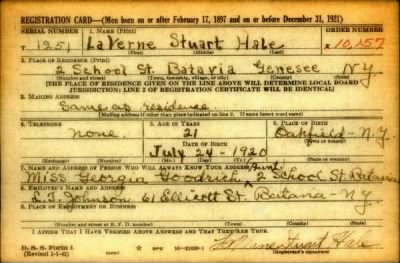 REGISTRATION CARD—(Men born on or after February 17, 1897 and on or before December 31, 1921)
SERIAL NUMBER 1. NAME (Print) ORDER NUMBER
T 1251 LaVerne Stuart Hale 10,157
(First) (Middle) (Last)
2. PLACE OF RESIDENCE (Print)
2 School St. Batavia Genesee N.Y
(Number and street) (Town, township, village, or city) (County) (State)
[THE PLACE OF RESIDENCE GIVEN ON THE LINE ABOVE WILL DETERMINE LOCAL BOARD
JURISDICTION; LINE 2 OF REGISTRATION CERTIFICATE WILL BE IDENTICAL]
3. MAILING ADDRESS
Same as residence.
[Mailing address if other than place indicated on line 2. If same insert word same]
4. TELEPHONE 5. AGE IN YEARS 6. PLACE OF BIRTH
none. 21 Oakfield-
DATE OF BIRTH (Town or county)
July 24- 1920 N.Y.
(Exchange) (Number) (Mo.) (Day) (Yr.) (State or country)
7. NAME AND ADDRESS OF PERSON WHO WILL ALWAYS KNOW YOUR ADDRESS
Aunt.
Miss Georgia Goodrich, 2 School St. Batavia
8. EMPLOYER'S NAME AND ADDRESS
Johnson 61 Ellicott St. Batavia- N.Y.
9. PLACE OF EMPLOYMENT OR BUSINESS
(Number and street or R. F. D. number) (Town) (County) (State)
I AFFIRM THAT I HAVE VERIFIED ABOVE ANSWERS AND THAT THEY ARE TRUE.
D. S. S. Form 1
(Revised 1-1-42) GPO LaVerne Stuart Hale
(Registrant's signature)